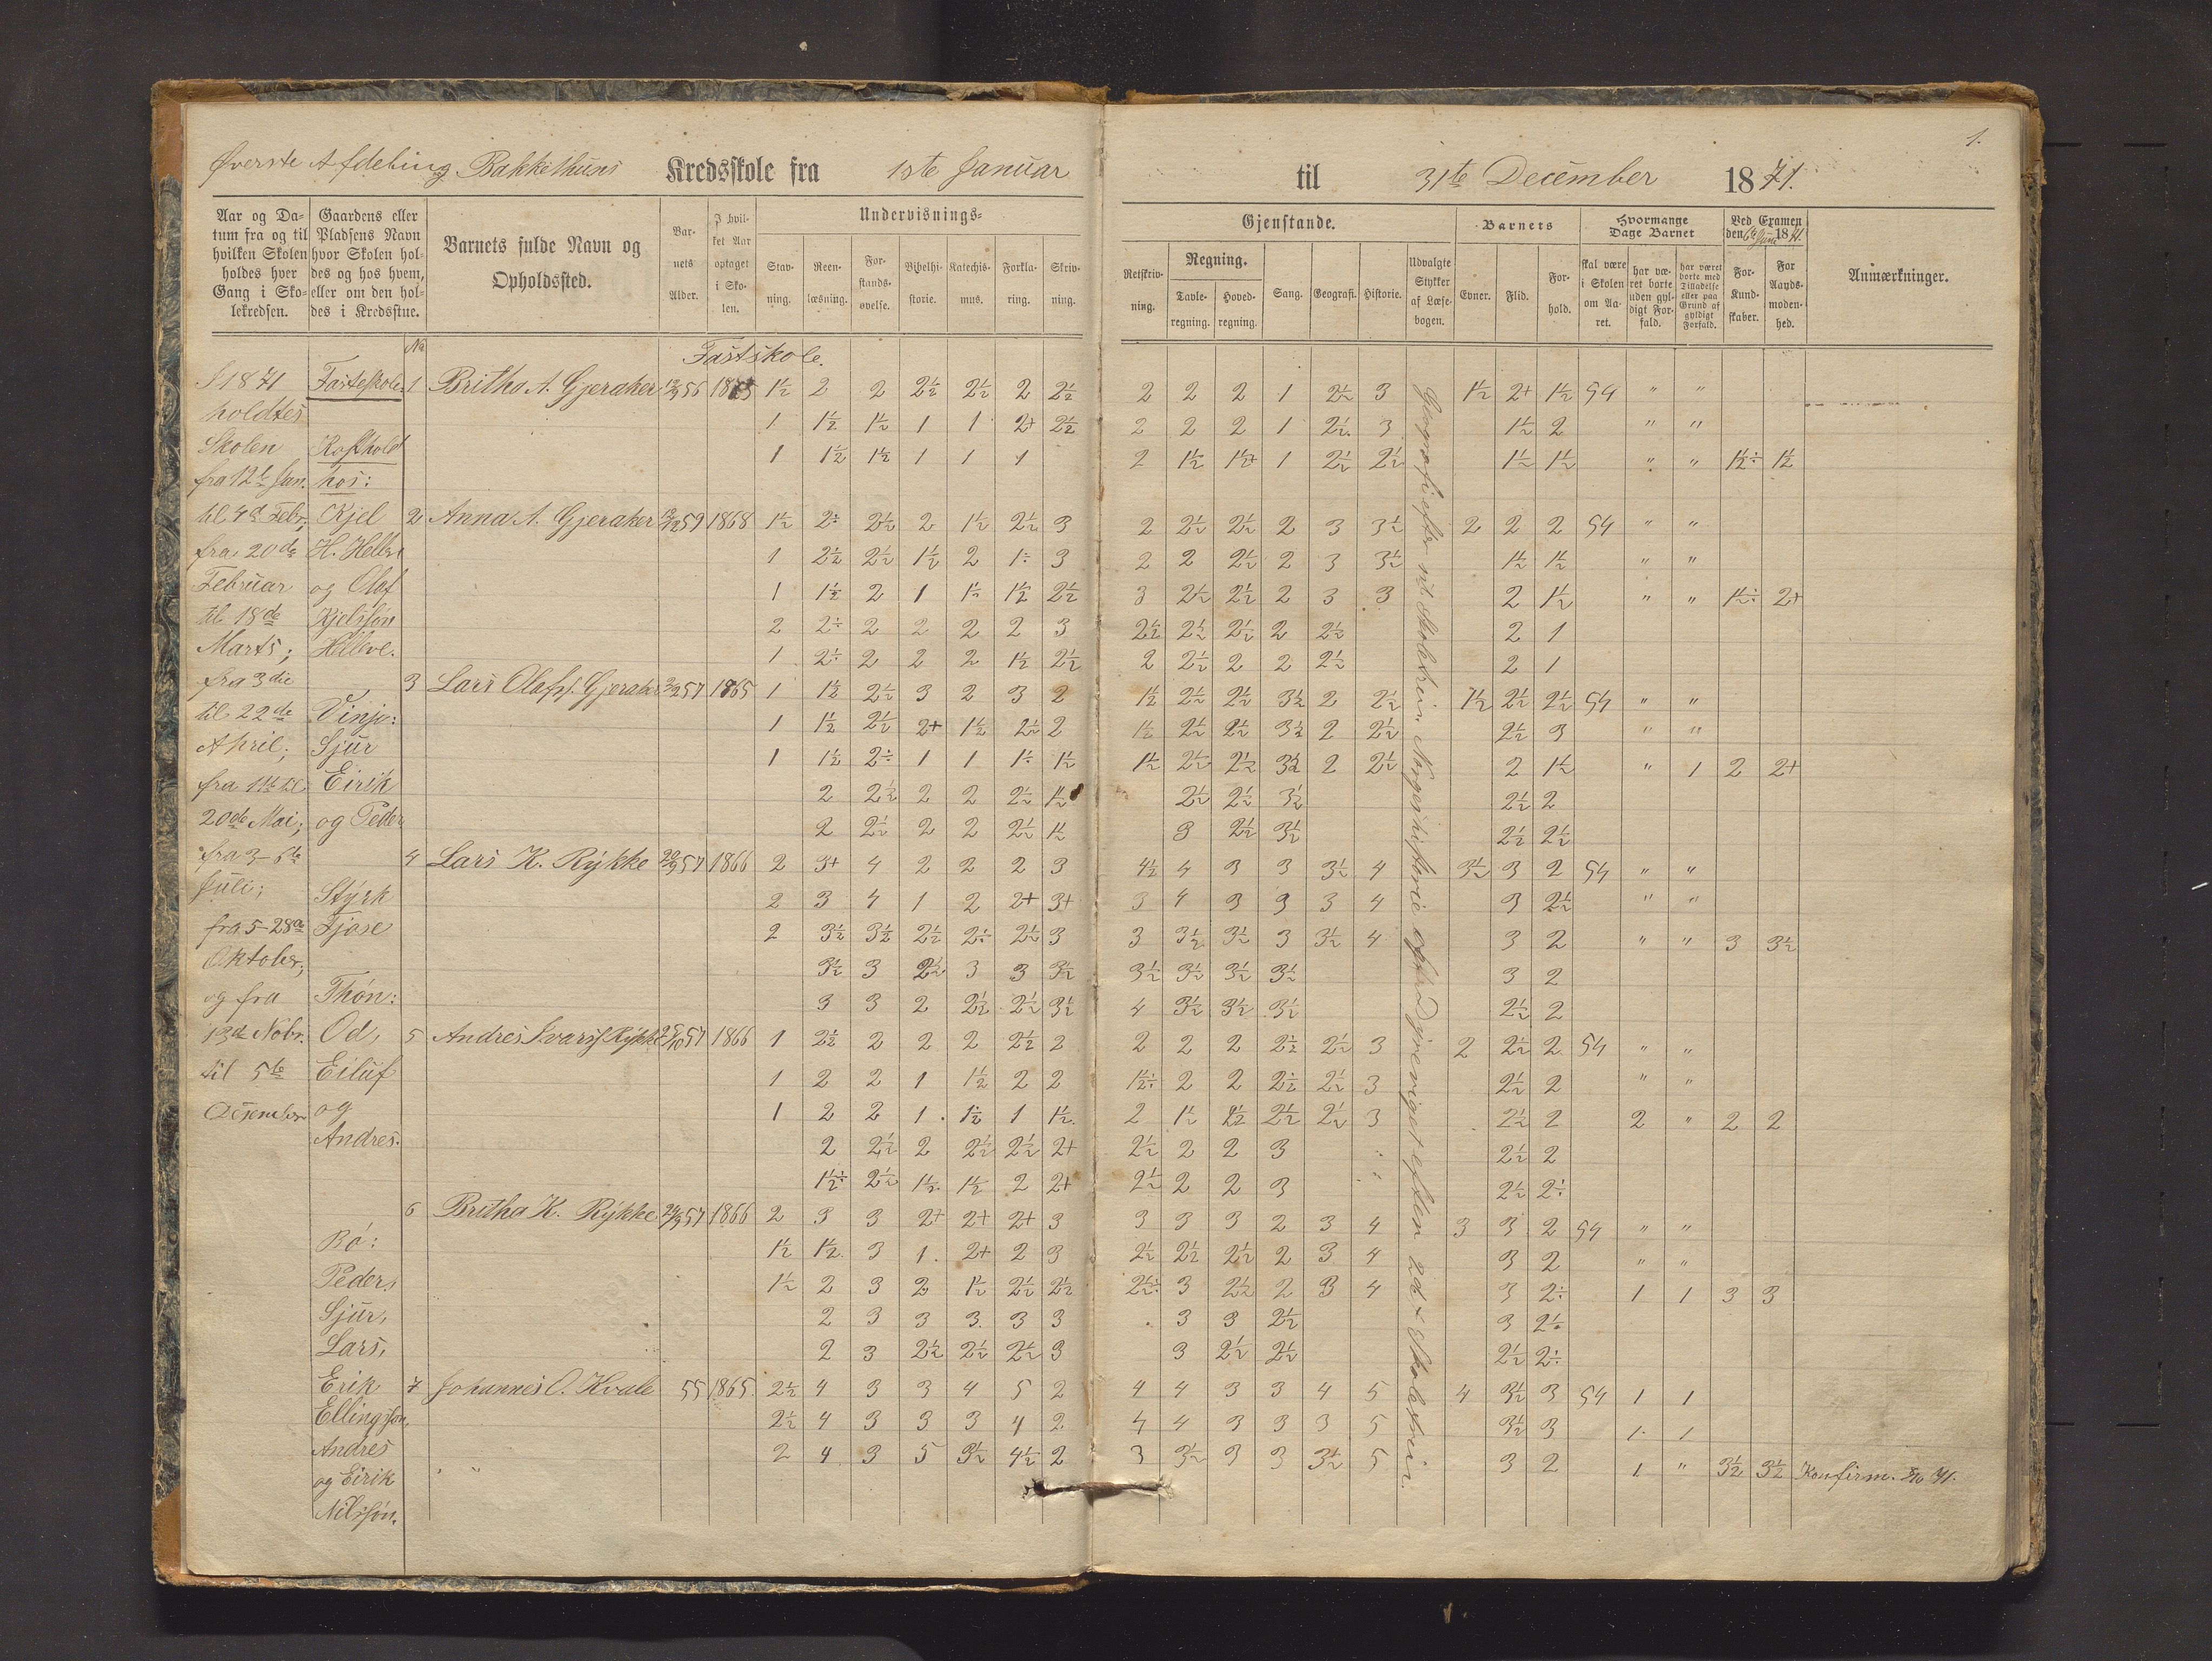 1.
Øverste Afdeling Bakkethuns Kredsskole fra 1ste Januar til 31te December 1871.
Aar og Datum fra og til hvilken Skolen holdes hver Gang i Skolekredsen.
Gaardens eller Pladsens Navn hvor Skolen holdes og hos hvem, eller om den holdes i Kredsstue.
Barnets fulde Navn og Opholdssted.
Barnets Alder.
I hvilket Aar optaget i Skolen.
Undervisnings-Gjenstande.
Stavning. Reenlæsning. Forstandsøvelse. Bibelhistorie. Katechismus. Forklaring. Skrivning.
Retskrivning. Regning. Tavleregning. Hovedregning. Sang. Geografi. Historie. Udvalgte Stykker af Læsebogen.
Barnets Evner. Flid. Forhold.
Hvormange Dage Barnet
skal være i Skolen om Aaret.
har været borte uden gyldigt Forfald.
har været borte med Tilladelse eller paa Grund af gyldigt Forfald.
Ved Examen den 6te Juni 1871.
Forkundskaber. For Aandsmodenhed.
Anmærkninger.
No
Fastskole.
I 1871 Fasteskole: 1 Britha A. Gjeraker 56 1865 1½ 2 2 2½ 2½ 2 2½ 2 2 2 1 2½ 3 1½ 2+ 1½ 54 " "
holdtes 1 1½ 1½ 1 1 2+ 2½ 2 2 2 1 2½ 3 1½ 2 " "
Skolen Kosthold 1 1½ 1½ 1 1 1 2 1½ 1½+ 1 2½ 2½ 1½ 1½ " " 1½÷ 1½
fra 12te Jan. hos:
til 4de Febr., Kjel 2 Anna A. Gjeraker 59 1868 1½ 2÷ 2½ 2 1½ 2½ 3 2 2½ 2½ 2 3 3½ 2 2 2 54 " "
fra 20de H. Helleve 1 2½ 2½ 1½ 2 1÷ 3 2 2 2½ 2 3 3½ 1½ 1½ " "
Februar og Olaf 1 1½ 2 1 1½ 1½ 2½ 3 2½ 2½ 2 3 3 2 1½ " " 1½÷ 2+
til 18de Kjelssøn 2 2÷ 2 2 2 2 3 2½ 2½ 2½ 2 2½ 2 1
Marts; Helleve. 1 2÷ 2 2 2 1½ 2½ 2 2½ 2 2 2½ 2 1
fra 3die 3 Lars Olafs. Gjeraker 57 1865 1 1½ 2½ 3 2 3 2 1½ 2½ 2½ 3½ 2 2½ 1½ 2½ 2½ 54 " "
til 22de Vinje: 1 1½ 2½ 2+ 1½ 2½ 2 1½ 2½ 2½ 3½ 2 2½ 2½ 3 " "
April; Sjur 1 1½ 2÷ 1 1 1÷ 1½ 1½ 2½ 2½ 3½ 2 2½ 2 1½ " 1 2 2+
fra 11te til Eirik 2 2½ 2 2 2½ 1½ 2½ 2½ 3½ 2½ 2
20de Mai; og Peder 2 2½ 2 2 2½ 1½ 3 2½ 3½ 2½ 2½
fra 3-6te 4 Lars K. Rykke 20/9 57 1866 2 3+ 4 2 2 2 3 4½ 4 3 3 3½ 4 3½ 3 2 54 " "
Juli; Styrk 2 3 4 1 2 2+ 3+ 3 4 3 3 3 4 3 2½ " "
fra 5-28de Fjose 2 3½ 3½ 2½ 2÷ 2½ 3 3 3½ 3½ 3 3½ 4 3 2 " " 3 3½
Oktober; 3½ 3 2½ 3 3 3½ 3½ 3½ 3½ 3½ 3 2
og fra Thön: 3 3 2 2½ 2½ 3½ 4 3½ 3½ 3½ 2½ 2
13de Nobr. Od, 5 Andres Ivars. Rykke 57 1866 1 2½ 2 2 2 2½ 2 2 2 2 2½ 2½ 3 2 2½ 2 54 " "
til 5te Eiluf 1 2 2 1 1½ 2 2 1½÷ 2 2 2½ 2½ 3 2½ 2 " "
Desember og 1 2 2 1 1½ 1 1½ 2 1½ 1½ 2½ 2½ 3 2½ 2 2 " 2 2
Andres. 2 2½ 2 2½ 2½ 2+ 2½ 2 2 3 2½ 2
1½÷ 2½ 1½ 1½ 2 2+ 2½ 2 2 3 2½ 2÷
6 Britha K. Rykke 57 1866 2 3 3 2+ 2+ 2+ 3 3 3 3 2 3 4 3 3 2 54 " "
Bö: 1½ 1½ 3 1 2+ 2 3 2½ 2½ 2½ 2 3 4 3 2 " "
Peder, 1½ 2 3 2 1½ 2½ 2½ 2½÷ 3 2½ 2 3 4 3 2÷ 1 1 3 3
Sjur, 2 3 3 3 3 3 3 3 2½ 3 2÷
Lars, 2 3 2½ 2½ 2½ 3 3 2½ 2½ 2½ 2÷
Erik 7 Johannes O. Hvale 55 1865 2½ 4 3 3 4 5 2 4 4 3 3 4 5 4 3½ 3 54 1 1
Ellingsøn, 2½ 4 3 3 3 4 2 4 4 3 3 3 5 3½ 3 1 1
Andres 2 4 3 5 3½ 4½ 2 3 3½ 3 3 3½ 5 3 2 1 " 3½ 3½ Konfirm. 71.
og Eirik
Nilssøn.
Geografi efter Norgeshistorie Dyreriget efter 2det Skoletrin